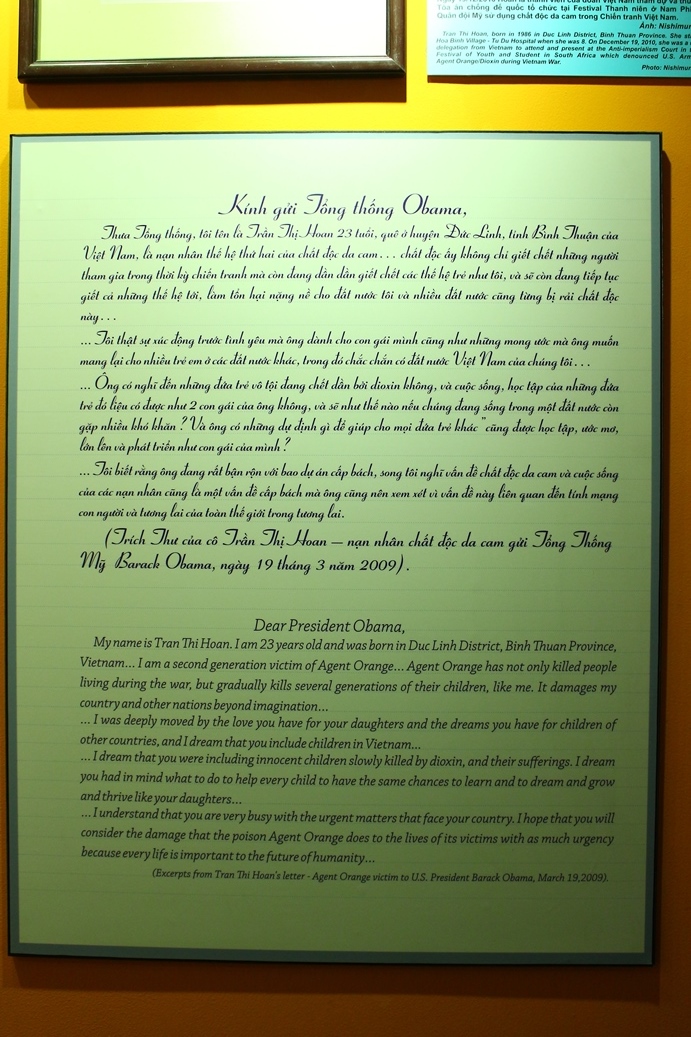 Tòa án chống đế quốc tổ chức tại Festival Thanh niên ở Nam
Quân đội Mỹ sử dụng chất độc da cam trong Chiến tranh Việt Nam.
Ảnh:
Tran Thi Hoan, born in 1986 in Duc Linh District, Binh Thuan Province. She
Hoa Binh Village - Tu Du Hospital when she was 8. On December 19, 2010, she was a
delegation from Vietnam to attend and present at the Anti-imperialism Court in
Festival of Youth and Student in South Africa which denounced U.S.
Agent Orange/Dioxin during Vietnam War.
Photo:
Kính gửi Tổng thống Obama,
Thưa Tổng thống, tôi tên là Trần Thị Hoan 23 tuổi, quê ở huyện Đức Linh, tỉnh Bình Thuận của
Việt Nam, là nạn nhân thế hệ thứ hai của chất độc da cam... chất độc ấy không chỉ giết chết những người
tham gia trong thời kỳ chiến tranh mà còn đang dần dần giết chết các thế hệ trẻ như tôi, và sẽ còn đang tiếp tục
giết cả những thế hệ tới, làm tổn hại nặng nề cho đất nước tôi và nhiều đất nước cũng từng bị rải chất độc
này...
... Tôi thật sự xúc động trước tình yêu mà ông dành cho con gái mình cũng như những mong ước mà ông muốn
mang lại cho nhiều trẻ em ở các đất nước khác, trong đó chắc chắn có đất nước Việt Nam của chúng tôi...
... Ông có nghĩ đến những đứa trẻ vô tội đang chết dần bởi dioxin không, và cuộc sống, học tập của những đứa
trẻ đó liệu có được như 2 con gái của ông không, và sẽ như thế nào nếu chúng đang sống trong một đất nước còn
gặp nhiều khó khăn? Và ông có những dự định gì để giúp cho mọi đứa trẻ khác "cũng được học tập, ước mơ,
lớn lên và phát triển như con gái của mình?
... Tôi biết rằng ông đang rất bận rộn với bao dự án cấp bách, song tôi nghĩ vấn đề chất độc da cam và cuộc sống
của các nạn nhân cũng là một vấn đề cấp bách mà ông cũng nên xem xét vì vấn đề này liên quan đến tính mạng
con người và tương lai của toàn thế giới trong tương lai.
(Trích Thư của cô Trần Thị Hoan – nạn nhân chất độc da cam gửi Tổng Thống
Mỹ Barack Obama, ngày 19 tháng 3 năm 2009).
Dear President Obama,
My name is Tran Thi Hoan. I am 23 years old and was born in Duc Linh District, Binh Thuan Province,
Vietnam... I am a second generation victim of Agent Orange... Agent Orange has not only killed people
living during the war, but gradually kills several generations of their children, like me. It damages my
country and other nations beyond imagination...
... I was deeply moved by the love you have for your daughters and the dreams you have for children of
other countries, and I dream that you include children in Vietnam...
... I dream that you were including innocent children slowly killed by dioxin, and their sufferings. I dream
you had in mind what to do to help every child to have the same chances to learn and to dream and grow
and thrive like your daughters...
... I understand that you are very busy with the urgent matters that face your country. I hope that you will
consider the damage that the poison Agent Orange does to the lives of its victims with as much urgency
because every life is important to the future of humanity...
(Excerpts from Tran Thi Hoan's letter - Agent Orange victim to U.S. President Barack Obama, March 19,2009).